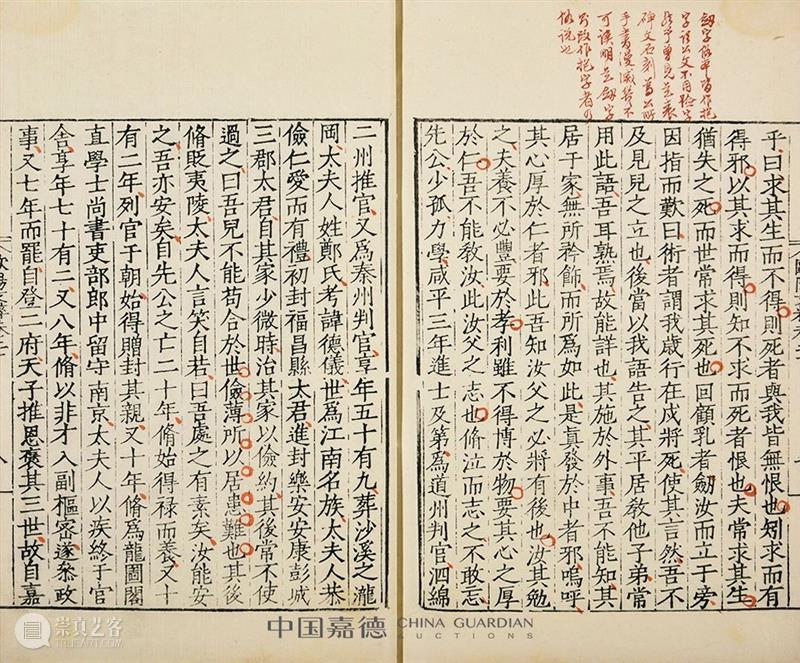 字謂公文不用險字
碑文石刻蓋公所
手書漫滅幾不
可讀明是劒字
改作抱字者
俗說也
乎曰求其生而不得則死者與我皆無恨也矧求而有
得邪以其求而得則知不求而死者恨也夫常求其生
猶失之死而世常求其死也回顧乳者劒汝而立于旁
因指而歎曰術者謂我歲行在戌將死使其言然吾不
及見兒之立也後當以我語告之其平居教他子弟常
用此語吾耳熟焉故能詳也其施於外事吾不能知其
居于家無所矜飾而所為如此是真發於中者邪嗚呼
其心厚於仁者邪此吾知汝父之必將有後也汝其勉
之夫養不必豐要於孝利雖不得博於物要其心之厚
於仁吾不能教汝此汝父之志也脩泣而志之不敢忘
先公少孤力學咸平三年進士及第為道州判官泗綿
二州推官又爲泰州判官享年五十有九葬沙溪之瀧
岡太夫人姓鄭氏考諱德儀世爲江南名族太夫人恭
儉仁愛而有禮初封福昌縣太君進封樂安安康彭城
三郡太君自其家少微時治其家以儉約其後常不使
過之曰吾兒不能苟合於世儉薄所以居患難也其後
脩貶夷陵太夫人言笑自若曰吾處之有素矣汝能安
之吾亦安矣自先公之亡二十年脩始得祿而養又十
有二年列官于朝始得贈封其親又十年脩爲龍圖閣
直學士尚書吏部郎中留守南京太夫人以疾終于官
舍享年七十有二又八年脩以非才入副樞密遂叅政
事又七年而罷自登二府天子推恩褒其三世故自嘉
中国嘉德 CHINA GUARDIAN
AUCTIONS
崇真艺客